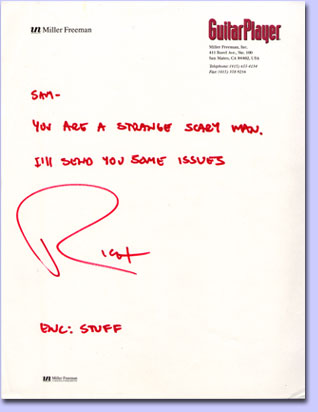 Miller Freeman
GuitarPlayer
Miller Freeman, Inc.
411 Borel Ave., Ste. 100
San Mateo, CA 94402, USA
Telephone (415) 655-4194
SAM-
YOU ARE A STRANGE SCARY MAN.
I'll SEND YOU SOME ISSUES
ENC: STUFF
Miller Freeman